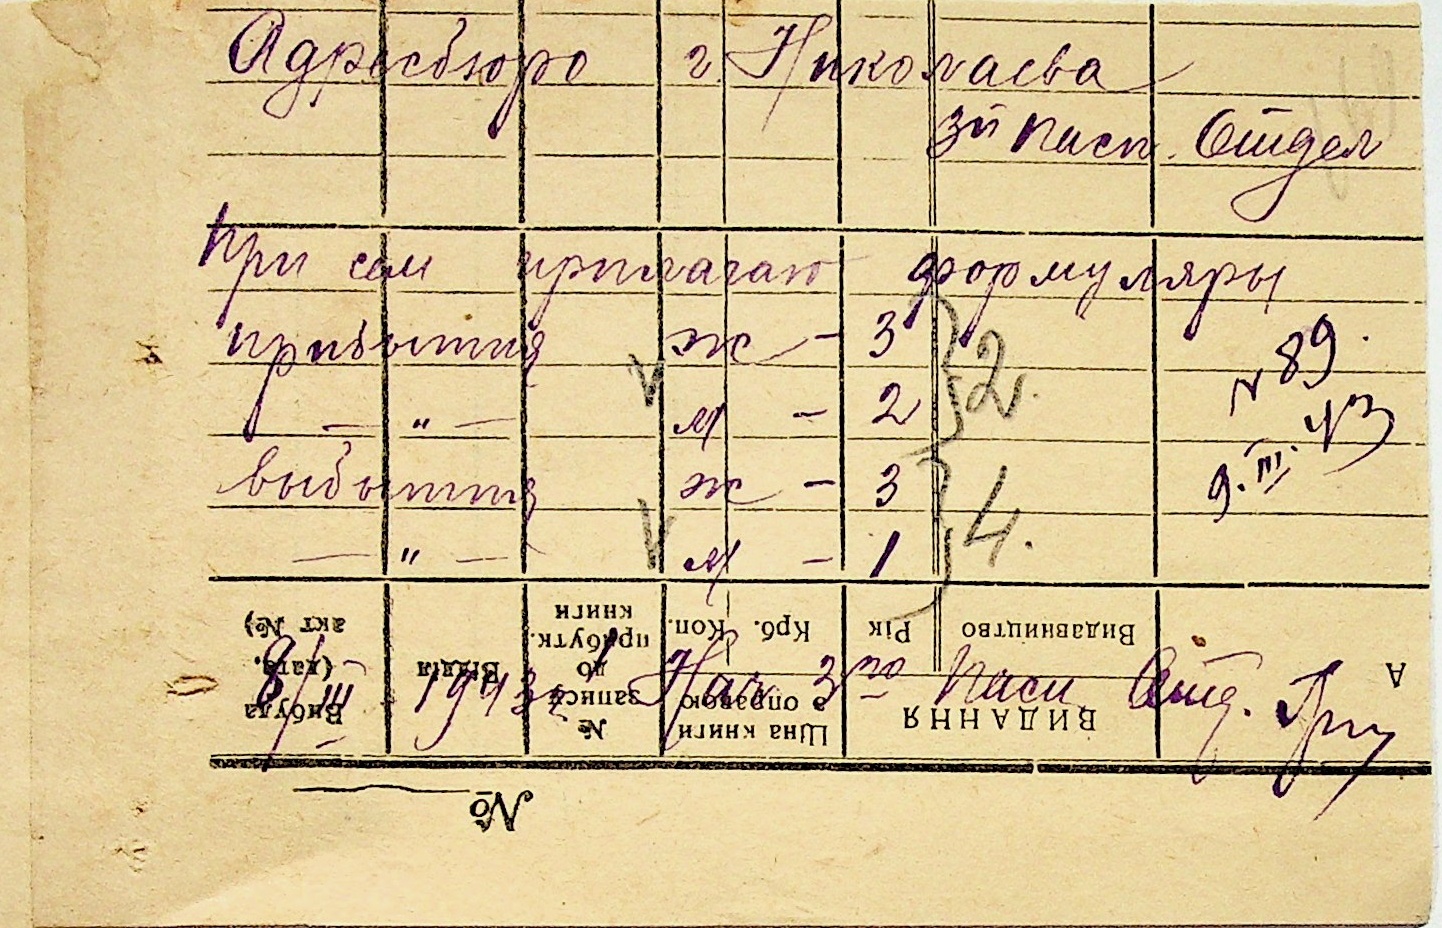 Адресбюро г. Николаева
3й Пасп. Отдел
При сем прилагаю формуляры
прибытия ж - 3 } 2.
— " — м - 2
№ 89.
9. III. 43
выбытия ж - 3 } 4.
— " — м - 1
8/III 1943 г. Нач. 3го Пасп Отд.
А
Видавництво
Рік
Крб. Коп.
ВИДАННЯ
Ціна книги з оправою
№ запису до прибутк. книги
Відділ
Вибула (дата, акт №)
№